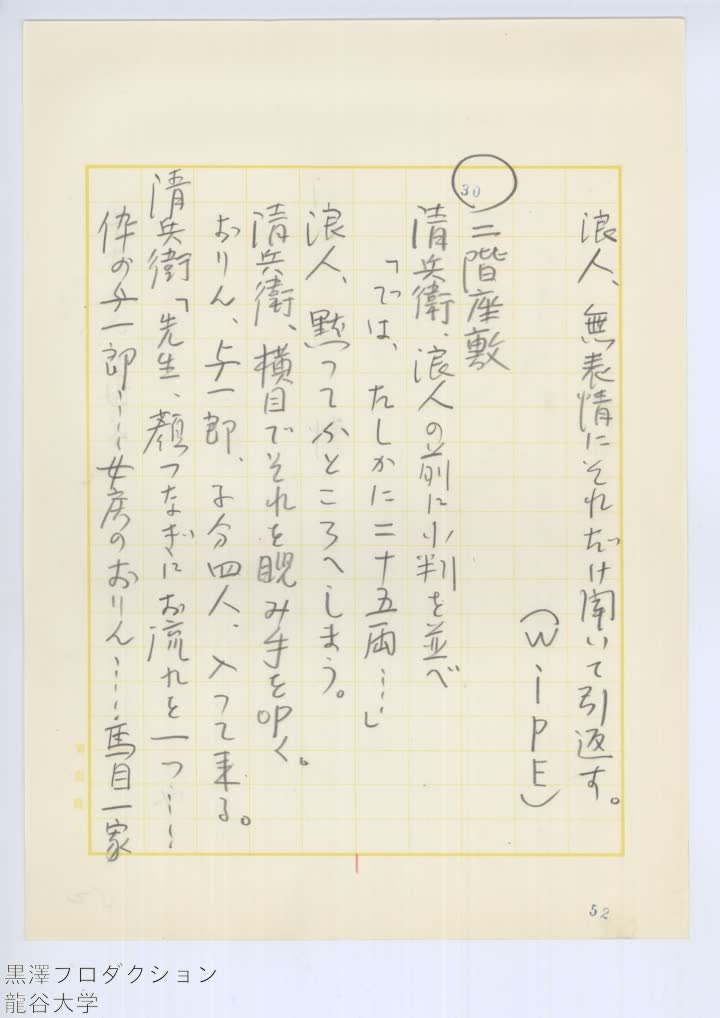 浪人、無表情にそれだけ聞いて引返す。
(WiPE)
30
二階座敷
清兵衛、浪人の前に小判を並べ
「では、たしかに二十五両…」
浪人、黙ってふところへしまう。
清兵衛、横目でそれを睨み手を叩く。
おりん、与一郎、子分四人、入って来る。
清兵衛「先生、顔つなぎにお流れを一つ……
伜の与一郎……女房のおりん……馬目一家
52
黒澤プロダクション
龍谷大学